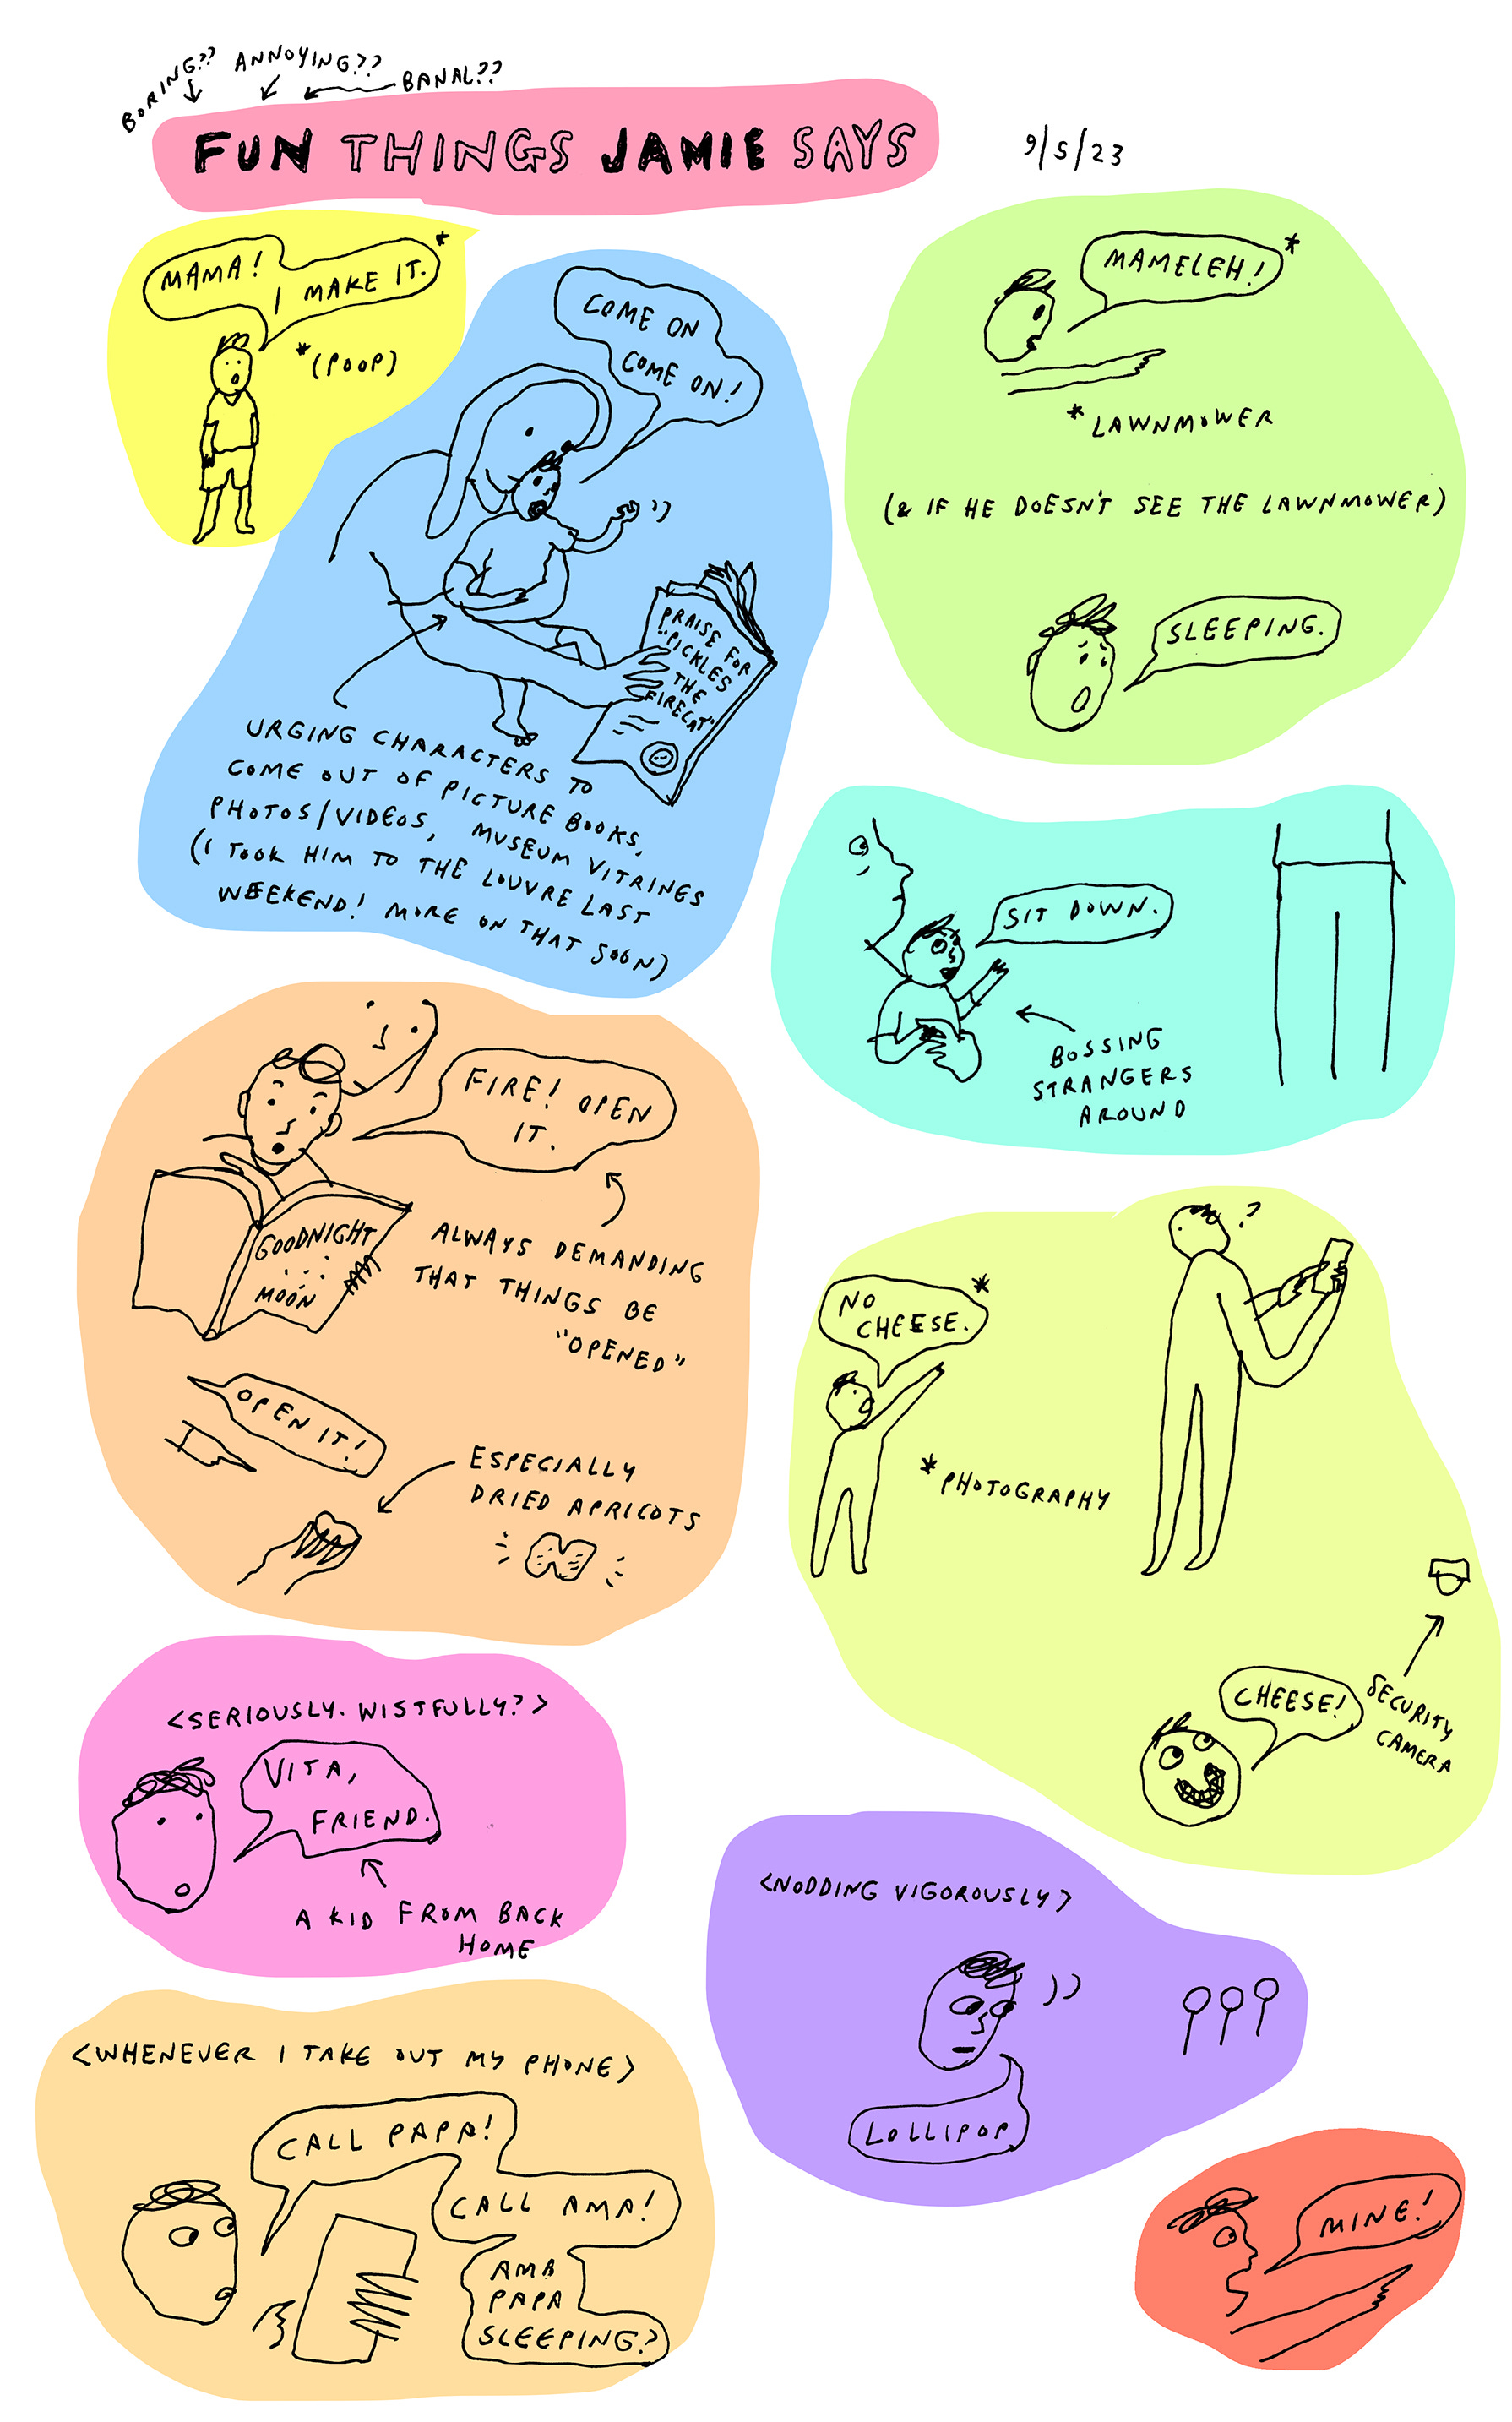 BORING??
ANNOYING??
BANAL??
FUN THINGS JAMIE SAYS
9/5/23
MAMA!
I MAKE IT.*
*(POOP)
COME ON
COME ON!
PRAISE FOR
"PICKLES
THE
FIRECAT"
URGING CHARACTERS TO
COME OUT OF PICTURE BOOKS,
PHOTOS/VIDEOS, MUSEUM VITRINES
(I TOOK HIM TO THE LOUVRE LAST
WEEKEND! MORE ON THAT SOON)
MAMELEH!*
*LAWNMOWER
(& IF HE DOESN'T SEE THE LAWNMOWER)
SLEEPING.
SIT DOWN.
BOSSING
STRANGERS
AROUND
FIRE! OPEN
IT.
GOODNIGHT
MOON
ALWAYS DEMANDING
THAT THINGS BE
"OPENED"
OPEN IT!
ESPECIALLY
DRIED APRICOTS
NO
CHEESE.*
?
*PHOTOGRAPHY
CHEESE!
SECURITY
CAMERA
<SERIOUSLY. WISTFULLY?>
VITA,
FRIEND.
A KID FROM BACK
HOME
<NODDING VIGOROUSLY>
LOLLIPOP
<WHENEVER I TAKE OUT MY PHONE>
CALL PAPA!
CALL AMA!
AMA
PAPA
SLEEPING?
MINE!